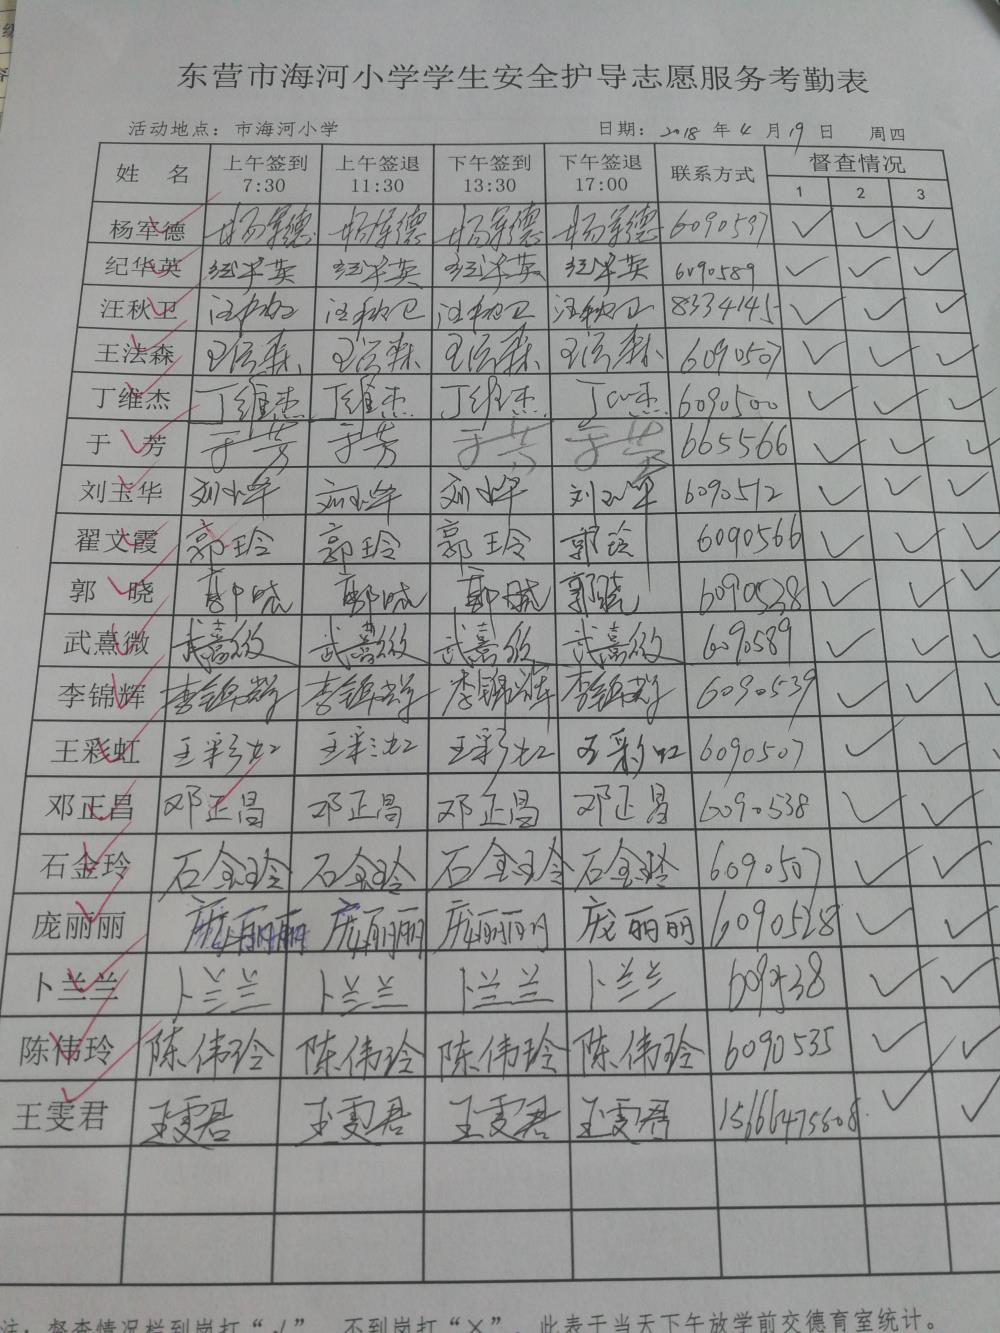 东营市海河小学学生安全护导志愿服务考勤表
活动地点：市海河小学 日期：2018 年 4 月 19 日 周四
姓 名 上午签到 7:30 上午签退 11:30 下午签到 13:30 下午签退 17:00 联系方式 督查情况
1 2 3
杨军德 杨军德 杨军德 杨军德 杨军德 6090597 ✓ ✓ ✓
纪华英 纪华英 纪华英 纪华英 纪华英 6090589 ✓ ✓ ✓
汪秋卫 汪秋卫 汪秋卫 汪秋卫 汪秋卫 8334145 ✓ ✓ ✓
王法森 王法森 王法森 王法森 王法森 6090507 ✓ ✓ ✓
丁维杰 丁维杰 丁维杰 丁维杰 丁维杰 6090500 ✓ ✓ ✓
于 芳 于芳 于芳 于芳 于芳 665566 ✓ ✓ ✓
刘玉华 刘玉华 刘玉华 刘玉华 刘玉华 6090512 ✓ ✓ ✓
翟文霞 郭玲 郭玲 郭玲 郭玲 6090566 ✓ ✓ ✓
郭 晓 郭晓 郭晓 郭晓 郭晓 6090538 ✓ ✓ ✓
武熹微 武熹微 武熹微 武熹微 武熹微 6090589 ✓ ✓ ✓
李锦辉 李锦辉 李锦辉 李锦辉 李锦辉 6090539 ✓ ✓ ✓
王彩虹 王彩虹 王彩虹 王彩虹 王彩虹 6090507 ✓ ✓
邓正昌 邓正昌 邓正昌 邓正昌 邓正昌 6090538 ✓ ✓
石金玲 石金玲 石金玲 石金玲 石金玲 6090507 ✓ ✓
庞丽丽 庞丽丽 庞丽丽 庞丽丽 庞丽丽 6090528 ✓ ✓
卜兰兰 卜兰兰 卜兰兰 卜兰兰 卜兰兰 ✓ ✓
陈伟玲 陈伟玲 陈伟玲 陈伟玲 陈伟玲 6090535 ✓ ✓
王雯君 王雯君 王雯君 王雯君 王雯君 15666475808 ✓ ✓
注：督查情况栏到岗打“√”，不到岗打“×”，此表于当天下午放学前交德育室统计。